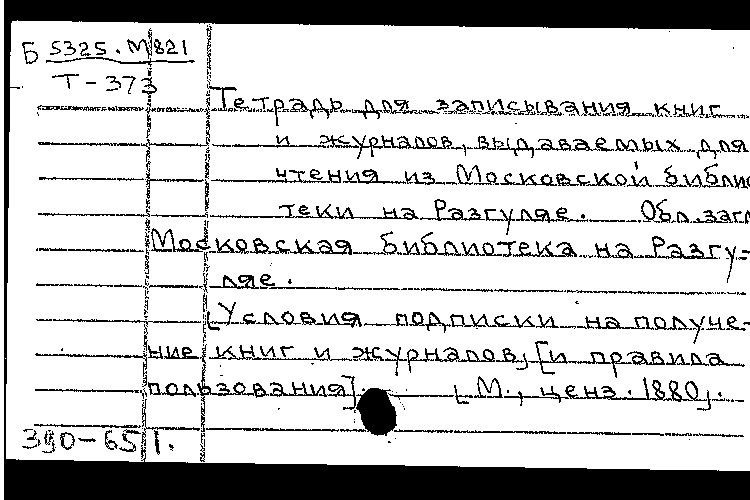 Б 5325.М821
Т-373
Тетрадь для записывания книг
и журналов, выдаваемых для
чтения из Московской библио
теки на Разгуляе. Обл.загл
Московская библиотека на Разгу-
ляе.
[Условия подписки на получе-
ние книг и журналов], [и правила
пользования]. [М., ценз. 1880].
390-651.